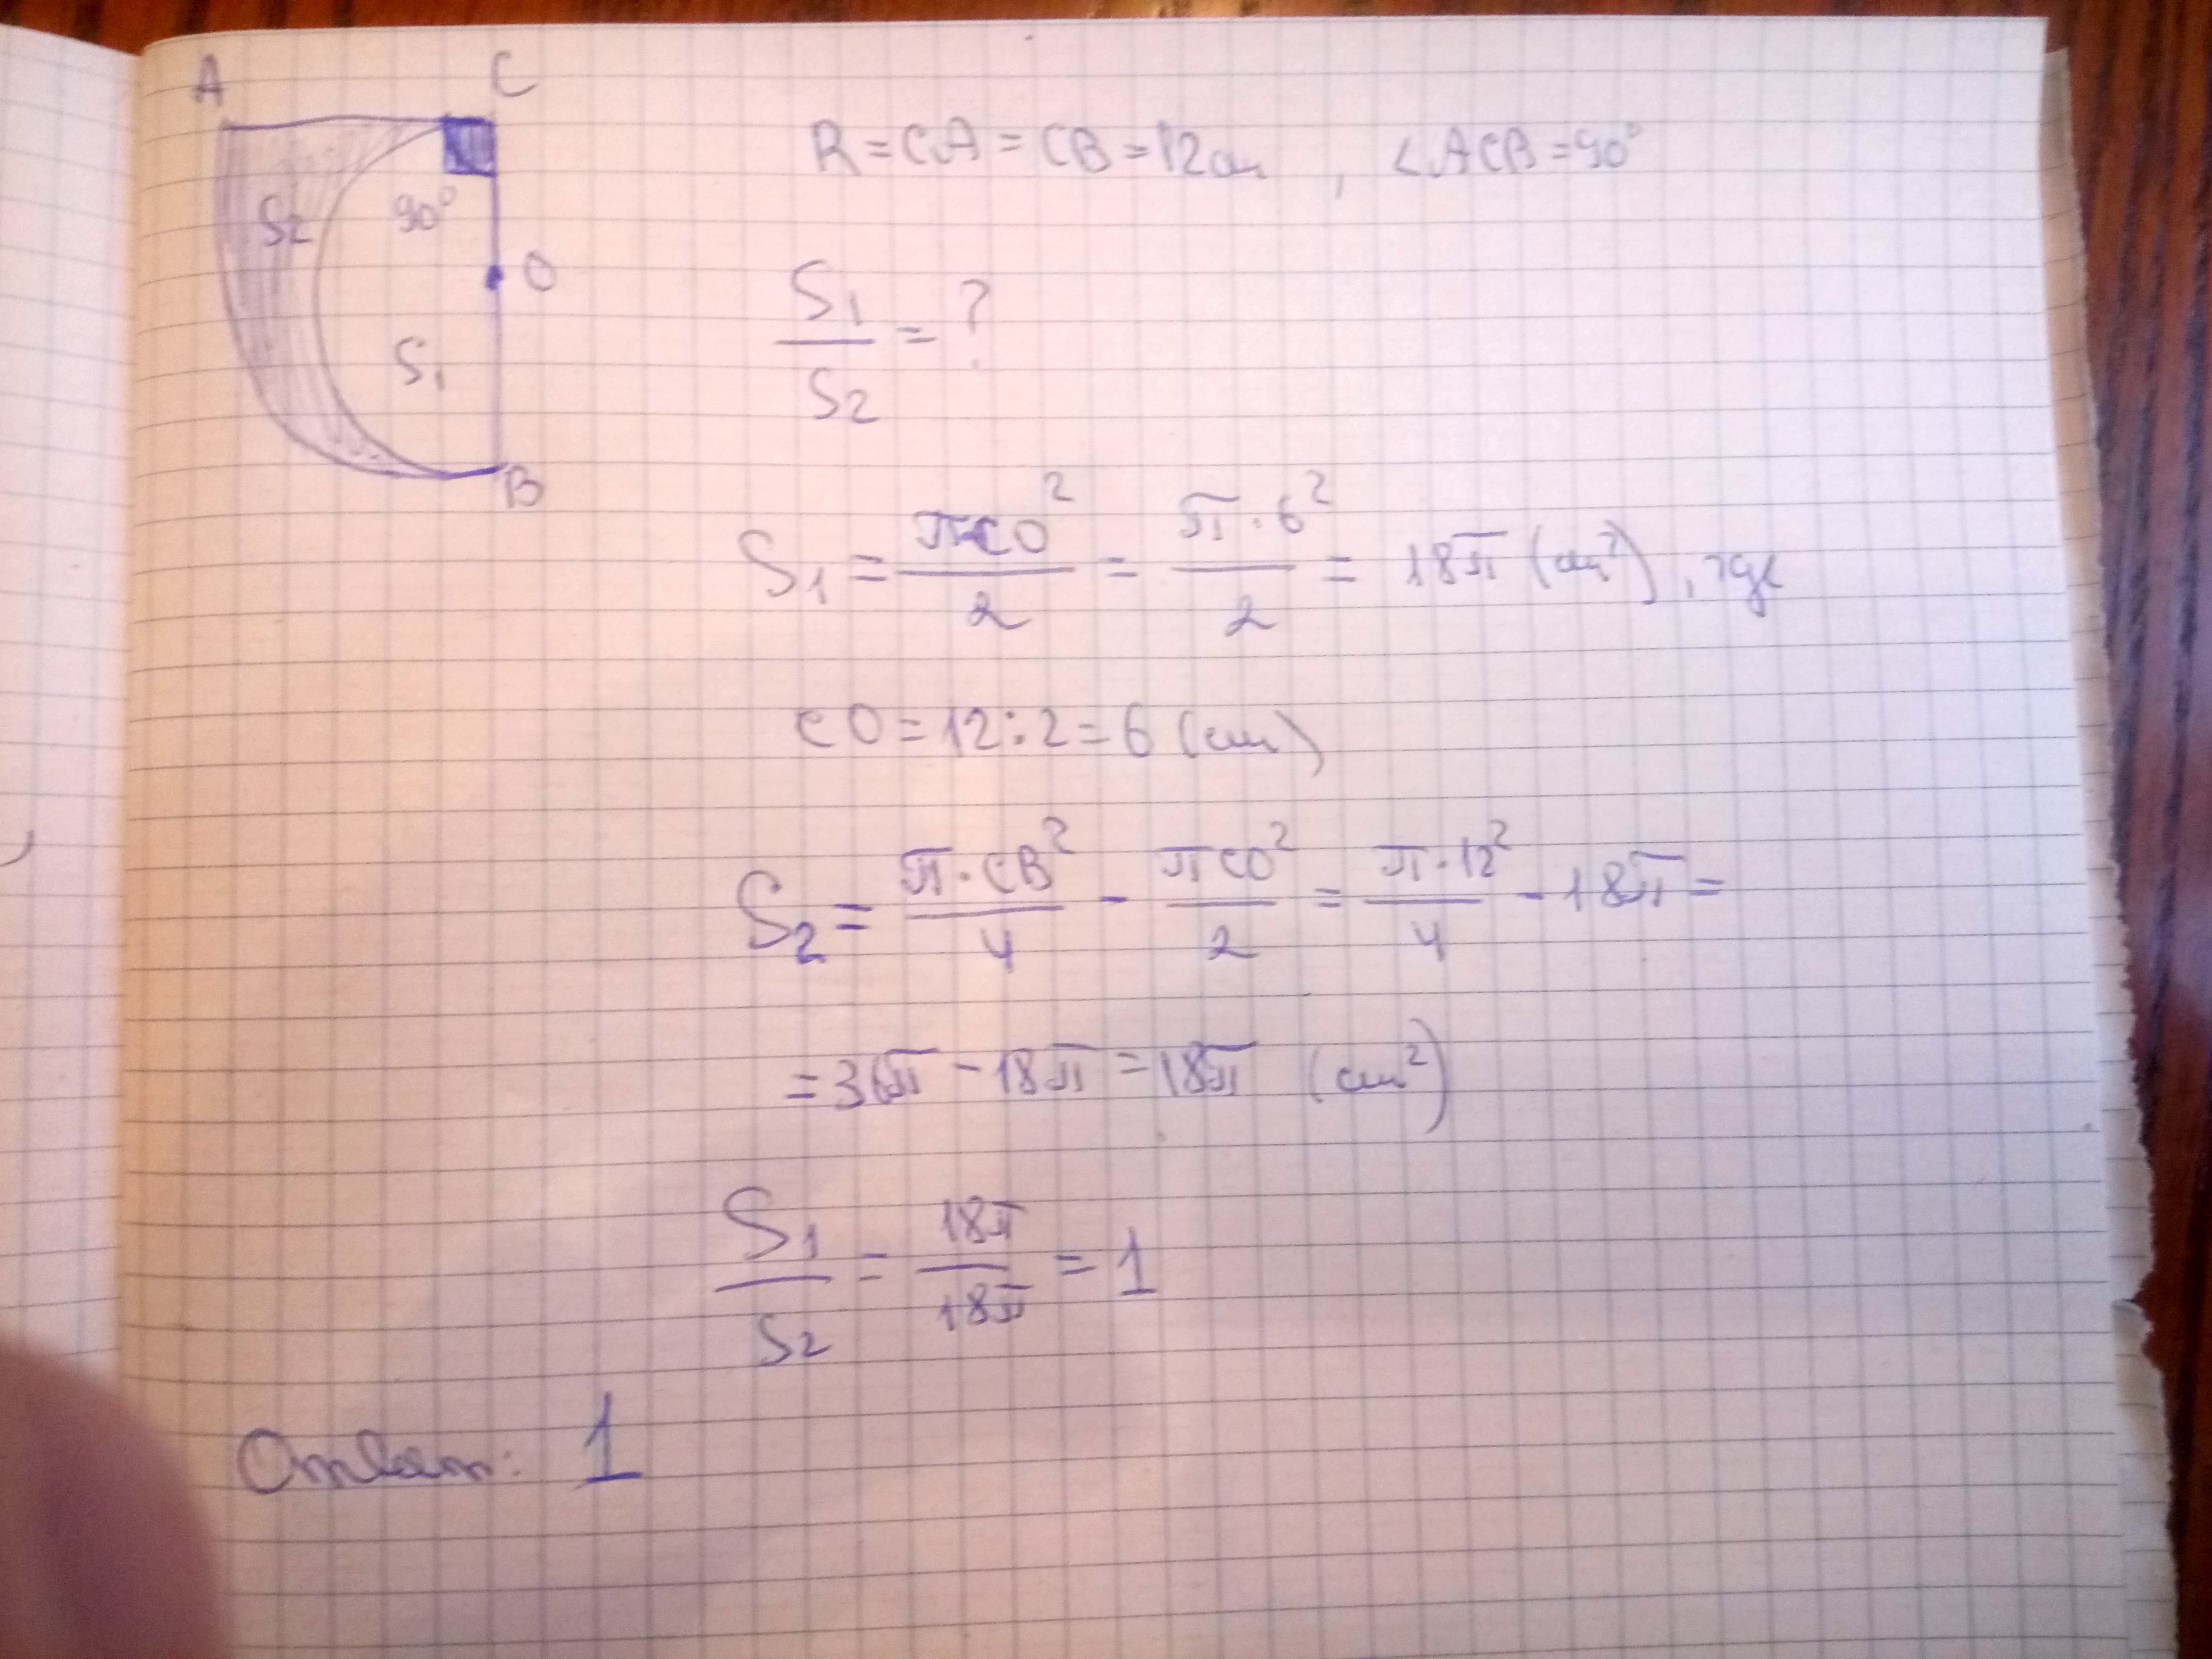 A C
R = CA = CB = 12см, ∠ACB = 90°
S2 90°
O
S1/S2 = ?
S1
B
S1 = π·CO²/2 = π·6²/2 = 18π (см²), где
CO = 12:2 = 6 (см)
S2 = π·CB²/4 - πCO²/2 = π·12²/4 - 18π =
= 36π - 18π = 18π (см²)
S1/S2 = 18π/18π = 1
Ответ: 1